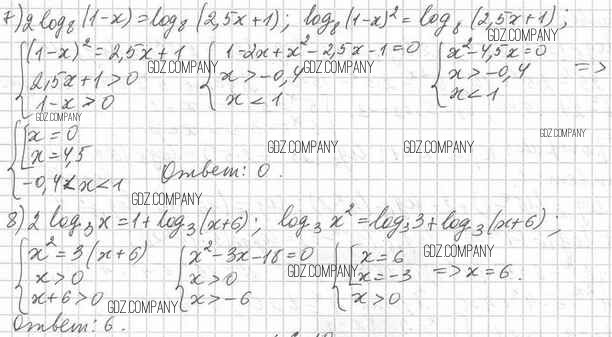 7) 2 log₈(1-x) = log₈(2,5x+1); log₈(1-x)² = log₈(2,5x+1);
{(1-x)² = 2,5x+1 {1-2x+x²-2,5x-1=0 {x²-4,5x=0
2,5x+1>0 x>-0,4 x>-0,4 =>
1-x>0 x<1 x<1
{[x=0
[x=4,5
-0,4<x<1 Ответ: 0.
8) 2 log₃x = 1+log₃(x+6); log₃x² = log₃3+log₃(x+6);
{x²=3(x+6) {x²-3x-18=0 {[x=6
x>0 x>0 [x=-3 => x=6.
x+6>0 x>-6 x>0
Ответ: 6.
GDZ.COMPANY
GDZ.COMPANY
GDZ.COMPANY
GDZ.COMPANY
GDZ.COMPANY
GDZ.COMPANY
GDZ.COMPANY
GDZ.COMPANY
GDZ.COMPANY
GDZ.COMPANY
GDZ.COMPANY
GDZ.COMPANY